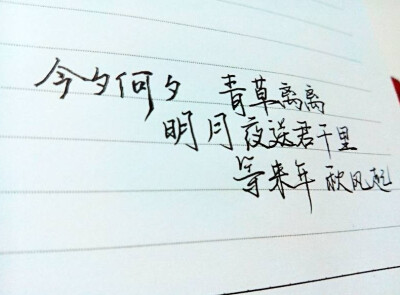 今夕何夕 青草离离
明月夜送君千里
等来年 秋风起